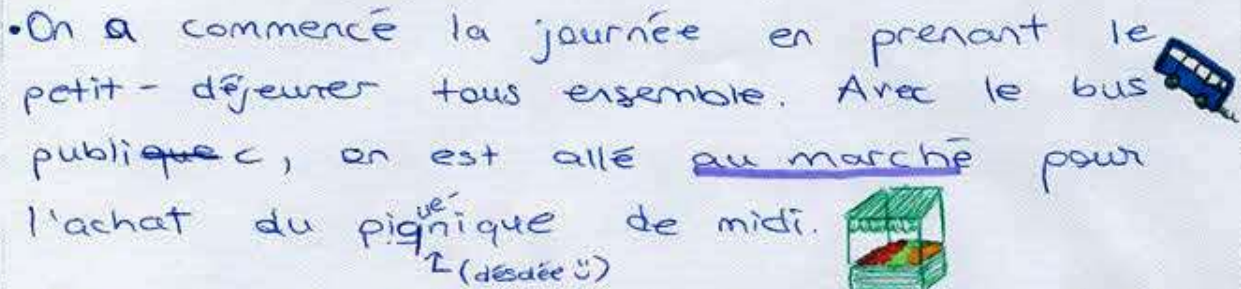 •On a commencé la journée en prenant le
petit-déjeuner tous ensemble. Avec le bus
publique c, on est allé au marché pour
l'achat du piqué-nique de midi.
(désolée ü)